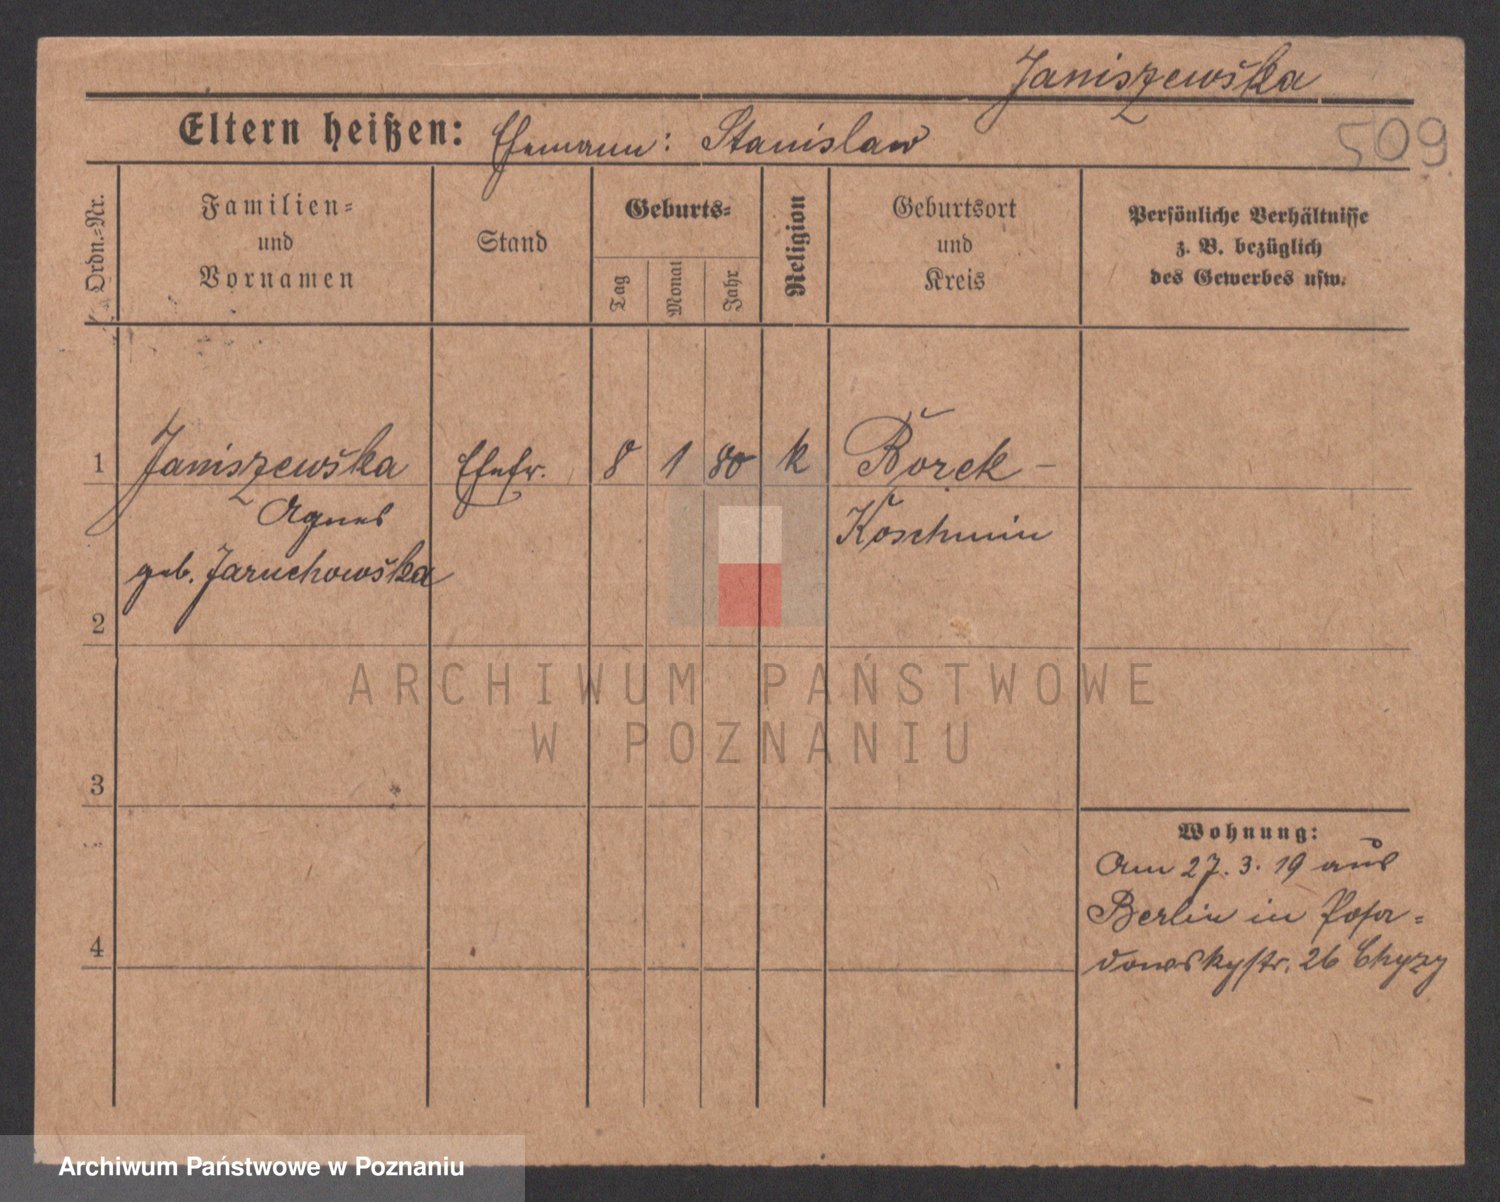 Janiszewska
Eltern heißen: Ehemann: Stanislaw
509
Ordn.-Nr.
Familien-
und
Vornamen
Stand
Geburts-
Tag
Monat
Jahr
Religion
Geburtsort
und
Kreis
Persönliche Verhältnisse
z. B. bezüglich
des Gewerbes usw.
1 Janiszewska Ehefr. 8 1 80 k Borek -
Agnes Koschmin
geb. Jaruchowska
2
ARCHIWUM PAŃSTWOWE
W POZNANIU
3
Wohnung:
Am 27. 3. 19 aus
Berlin in Posa-
dowskystr. 26 Chyzy
4
Archiwum Państwowe w Poznaniu